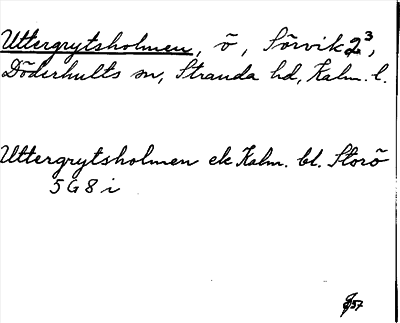 Uttergrytsholmen, ö, Sörvik 2³,
Döderhults sn, Stranda hd, Kalm. l.
Uttergrytsholmen ek Kalm. bl. Storö
5 G 8 i